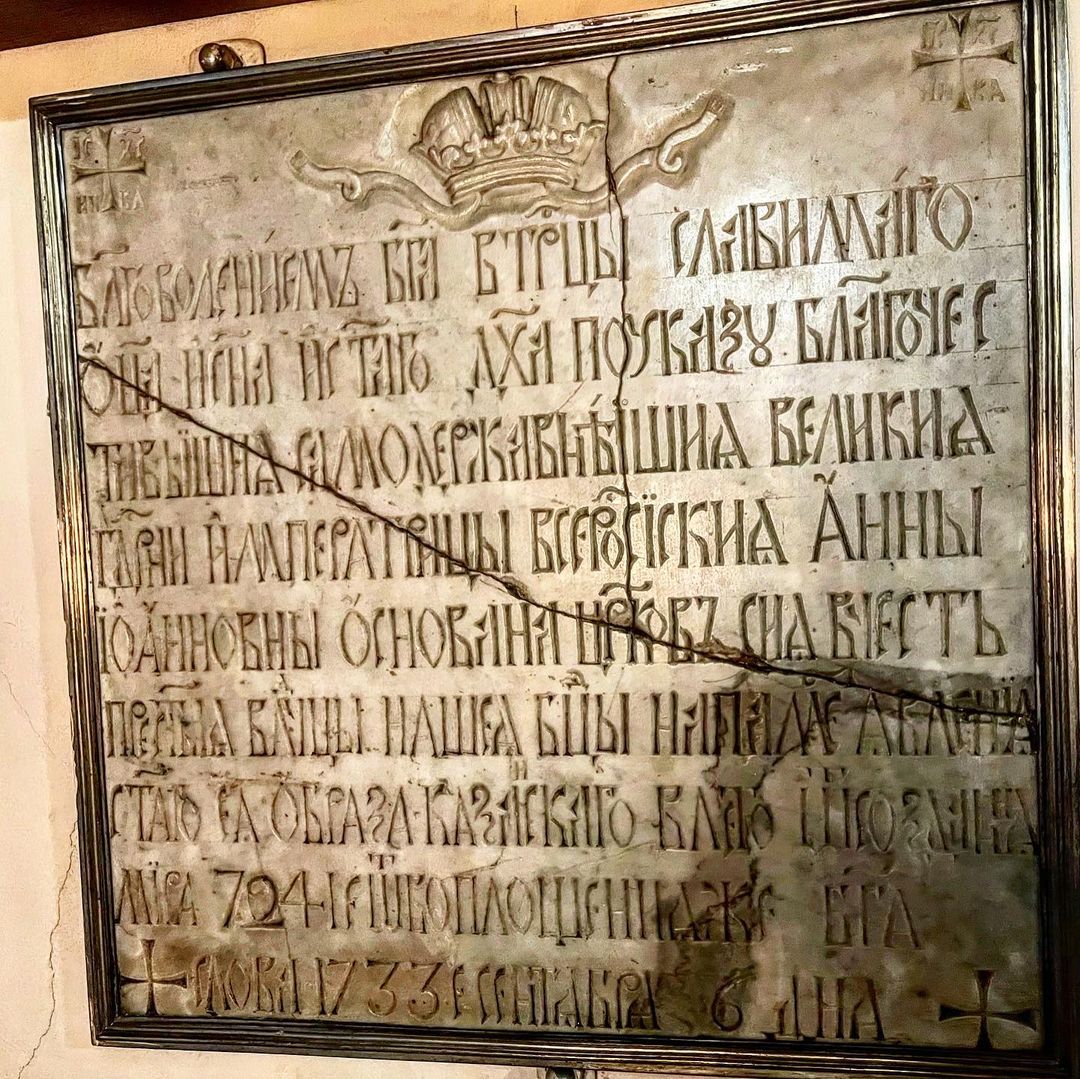 І҃С Х҃С
НИ КА
І҃С Х҃С
НИ КА
БЛ҃ГОВОЛЕНІЕМЪ БГ҃А В ТРЦ҃Ы СЛАВИМАГО
ОЦ҃А И СН҃А И СТ҃АГѠ ДХ҃А ПО УКАЗꙋ БЛ҃АГОЧЕС
ТИВѢЙШИѦ САМОДЕРЖАВНѢЙШИѦ ВЕЛИКИѦ
ГДР҃НИ ИМПЕРАТРИЦЫ ВСЕРОСІЙСКИѦ АННЫ
ІОАННОВНЫ ОСНОВАНА ЦРК҃ОВЪ СИѦ В ЧЕСТЬ
ПРЕСТ҃ЫѦ ВЛДЦ҃Ы НАШЕѦ БЦ҃Ы НА ПАМ ЯВЛЕНИѦ
СТ҃АГѠ ЕѦ ОБРАЗА КАЗАНСКАГО В ЛѢТО Ѿ СОЗДАНИѦ
МІРА 7241 Е Ѿ ВОПЛОЩЕНИѦ ЖЕ БГ҃А
СЛОВА 1733 Е СЕНТѦБРѦ 6 ДНѦ